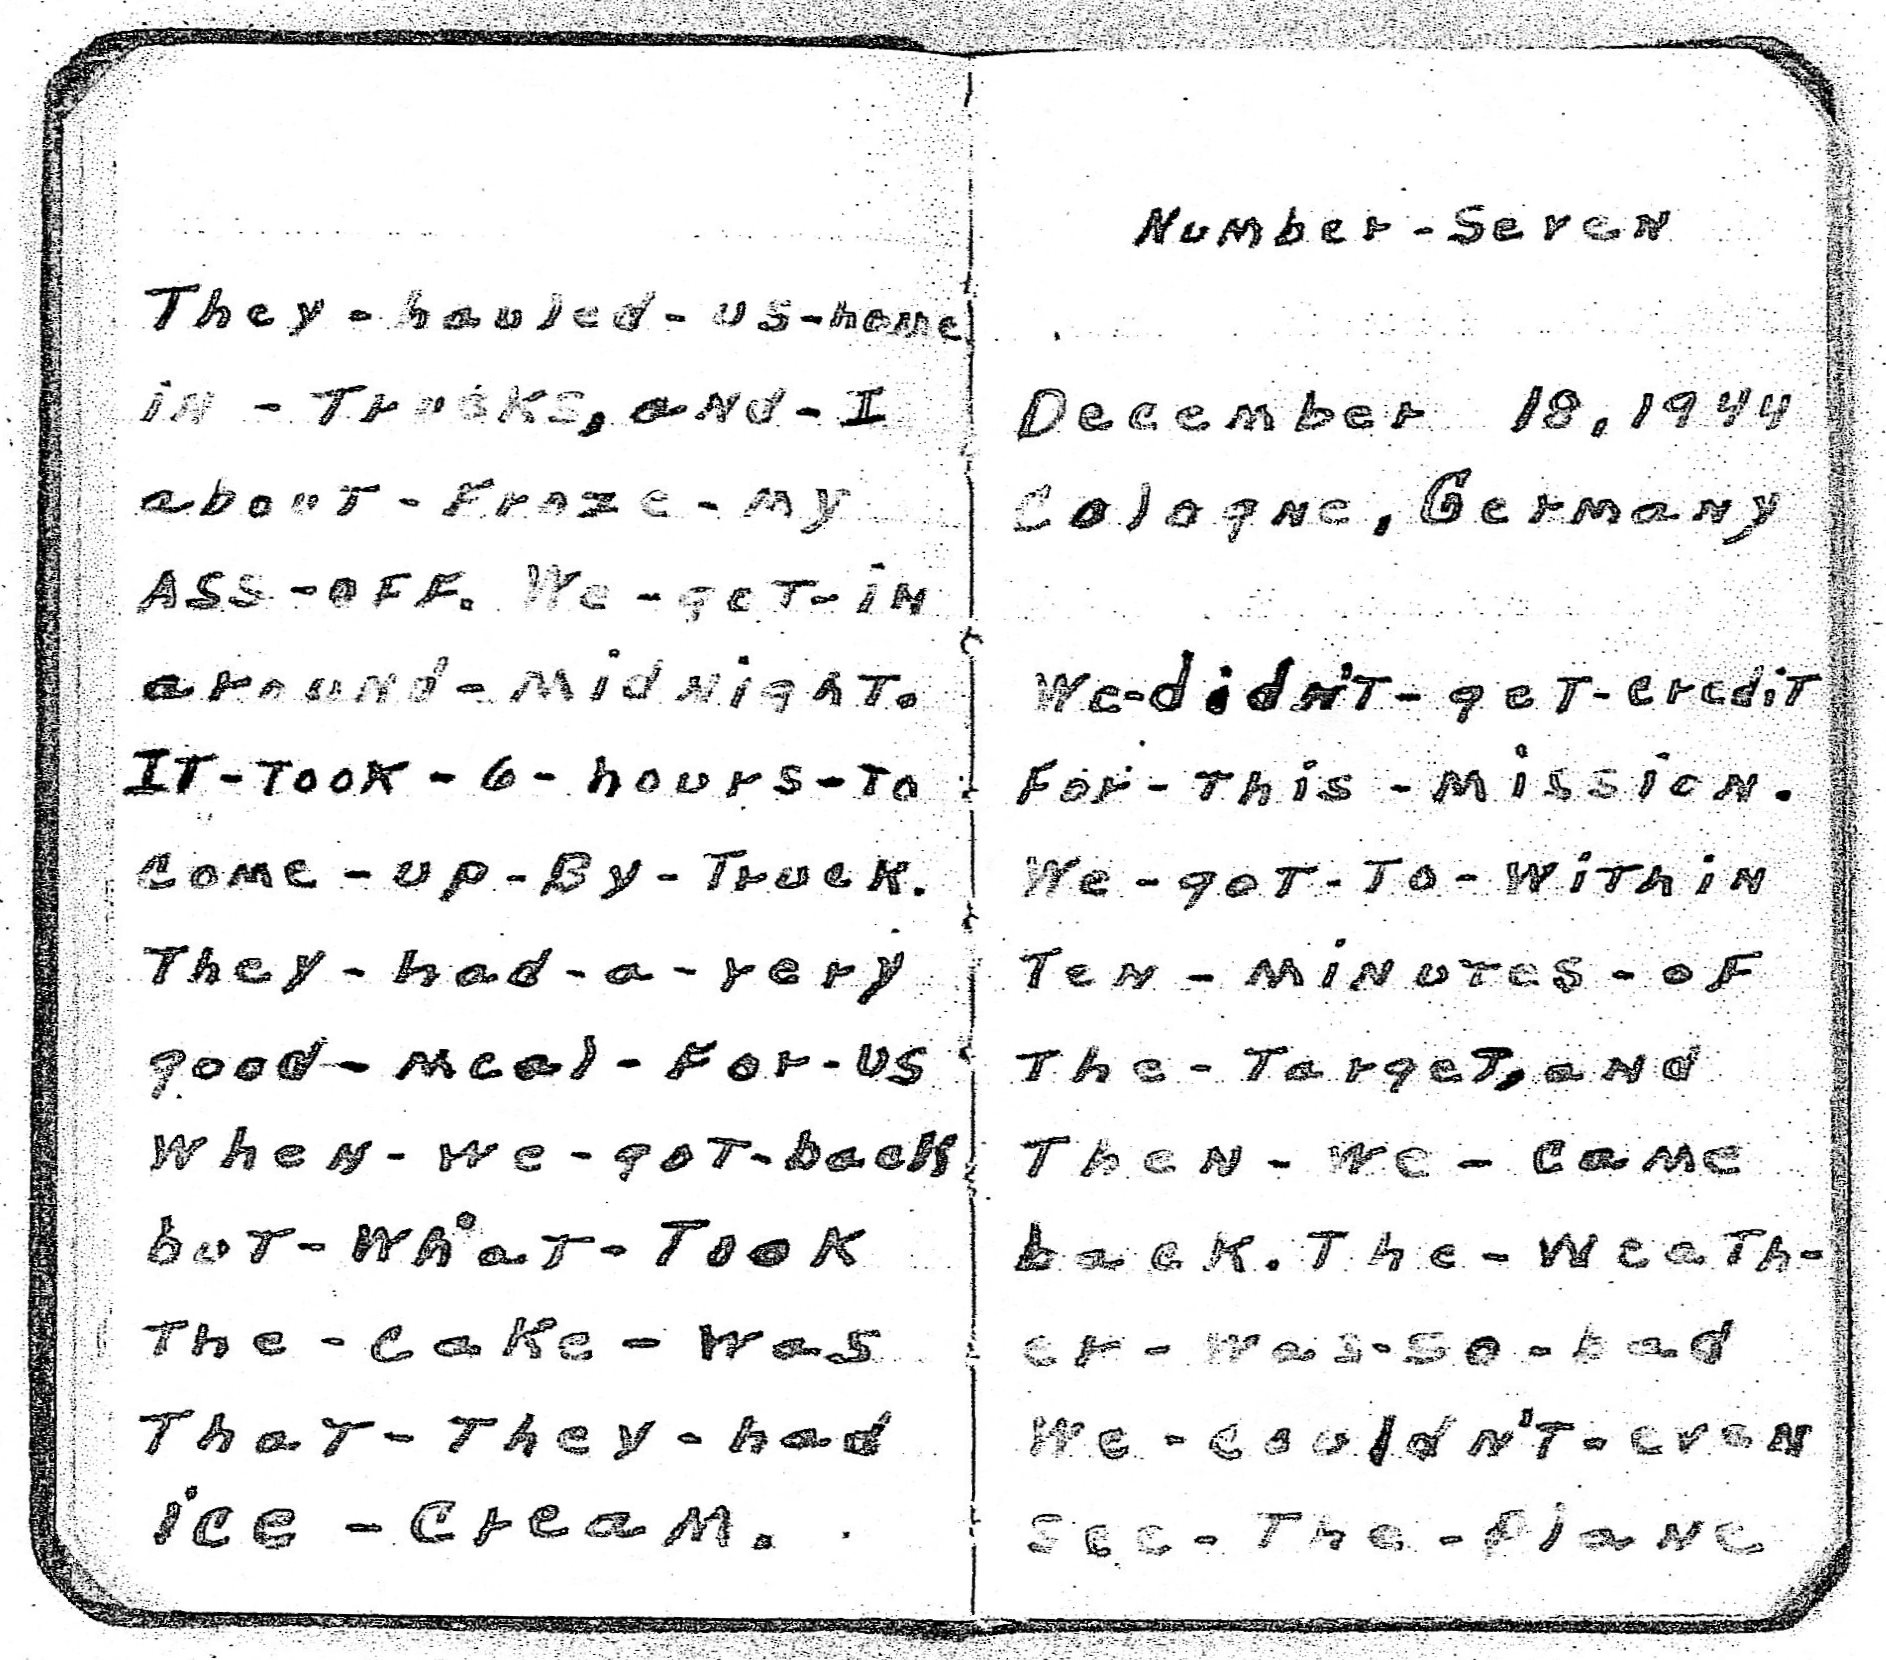 They-hauled-us-home
in-Trucks, and-I
about-Froze-my
ASS-OFF. We-get-in
around-Midnight.
IT-Took-6-hours-To
Come-up-By-Truck.
They-had-a-very
good-meal-For-US
When-we-got-back
but-What-Took
The-Cake-was
That-They-had
ice-Cream.
Number-Seven
December 18, 1944
Cologne, Germany
We-didn't-get-credit
For-This-Mission.
We-got-To-Within
Ten-Minutes-of
The-Target, and
Then-we-Came
back. The-Weath-
er-was-so-bad
We-couldn't-even
See-The-Plane